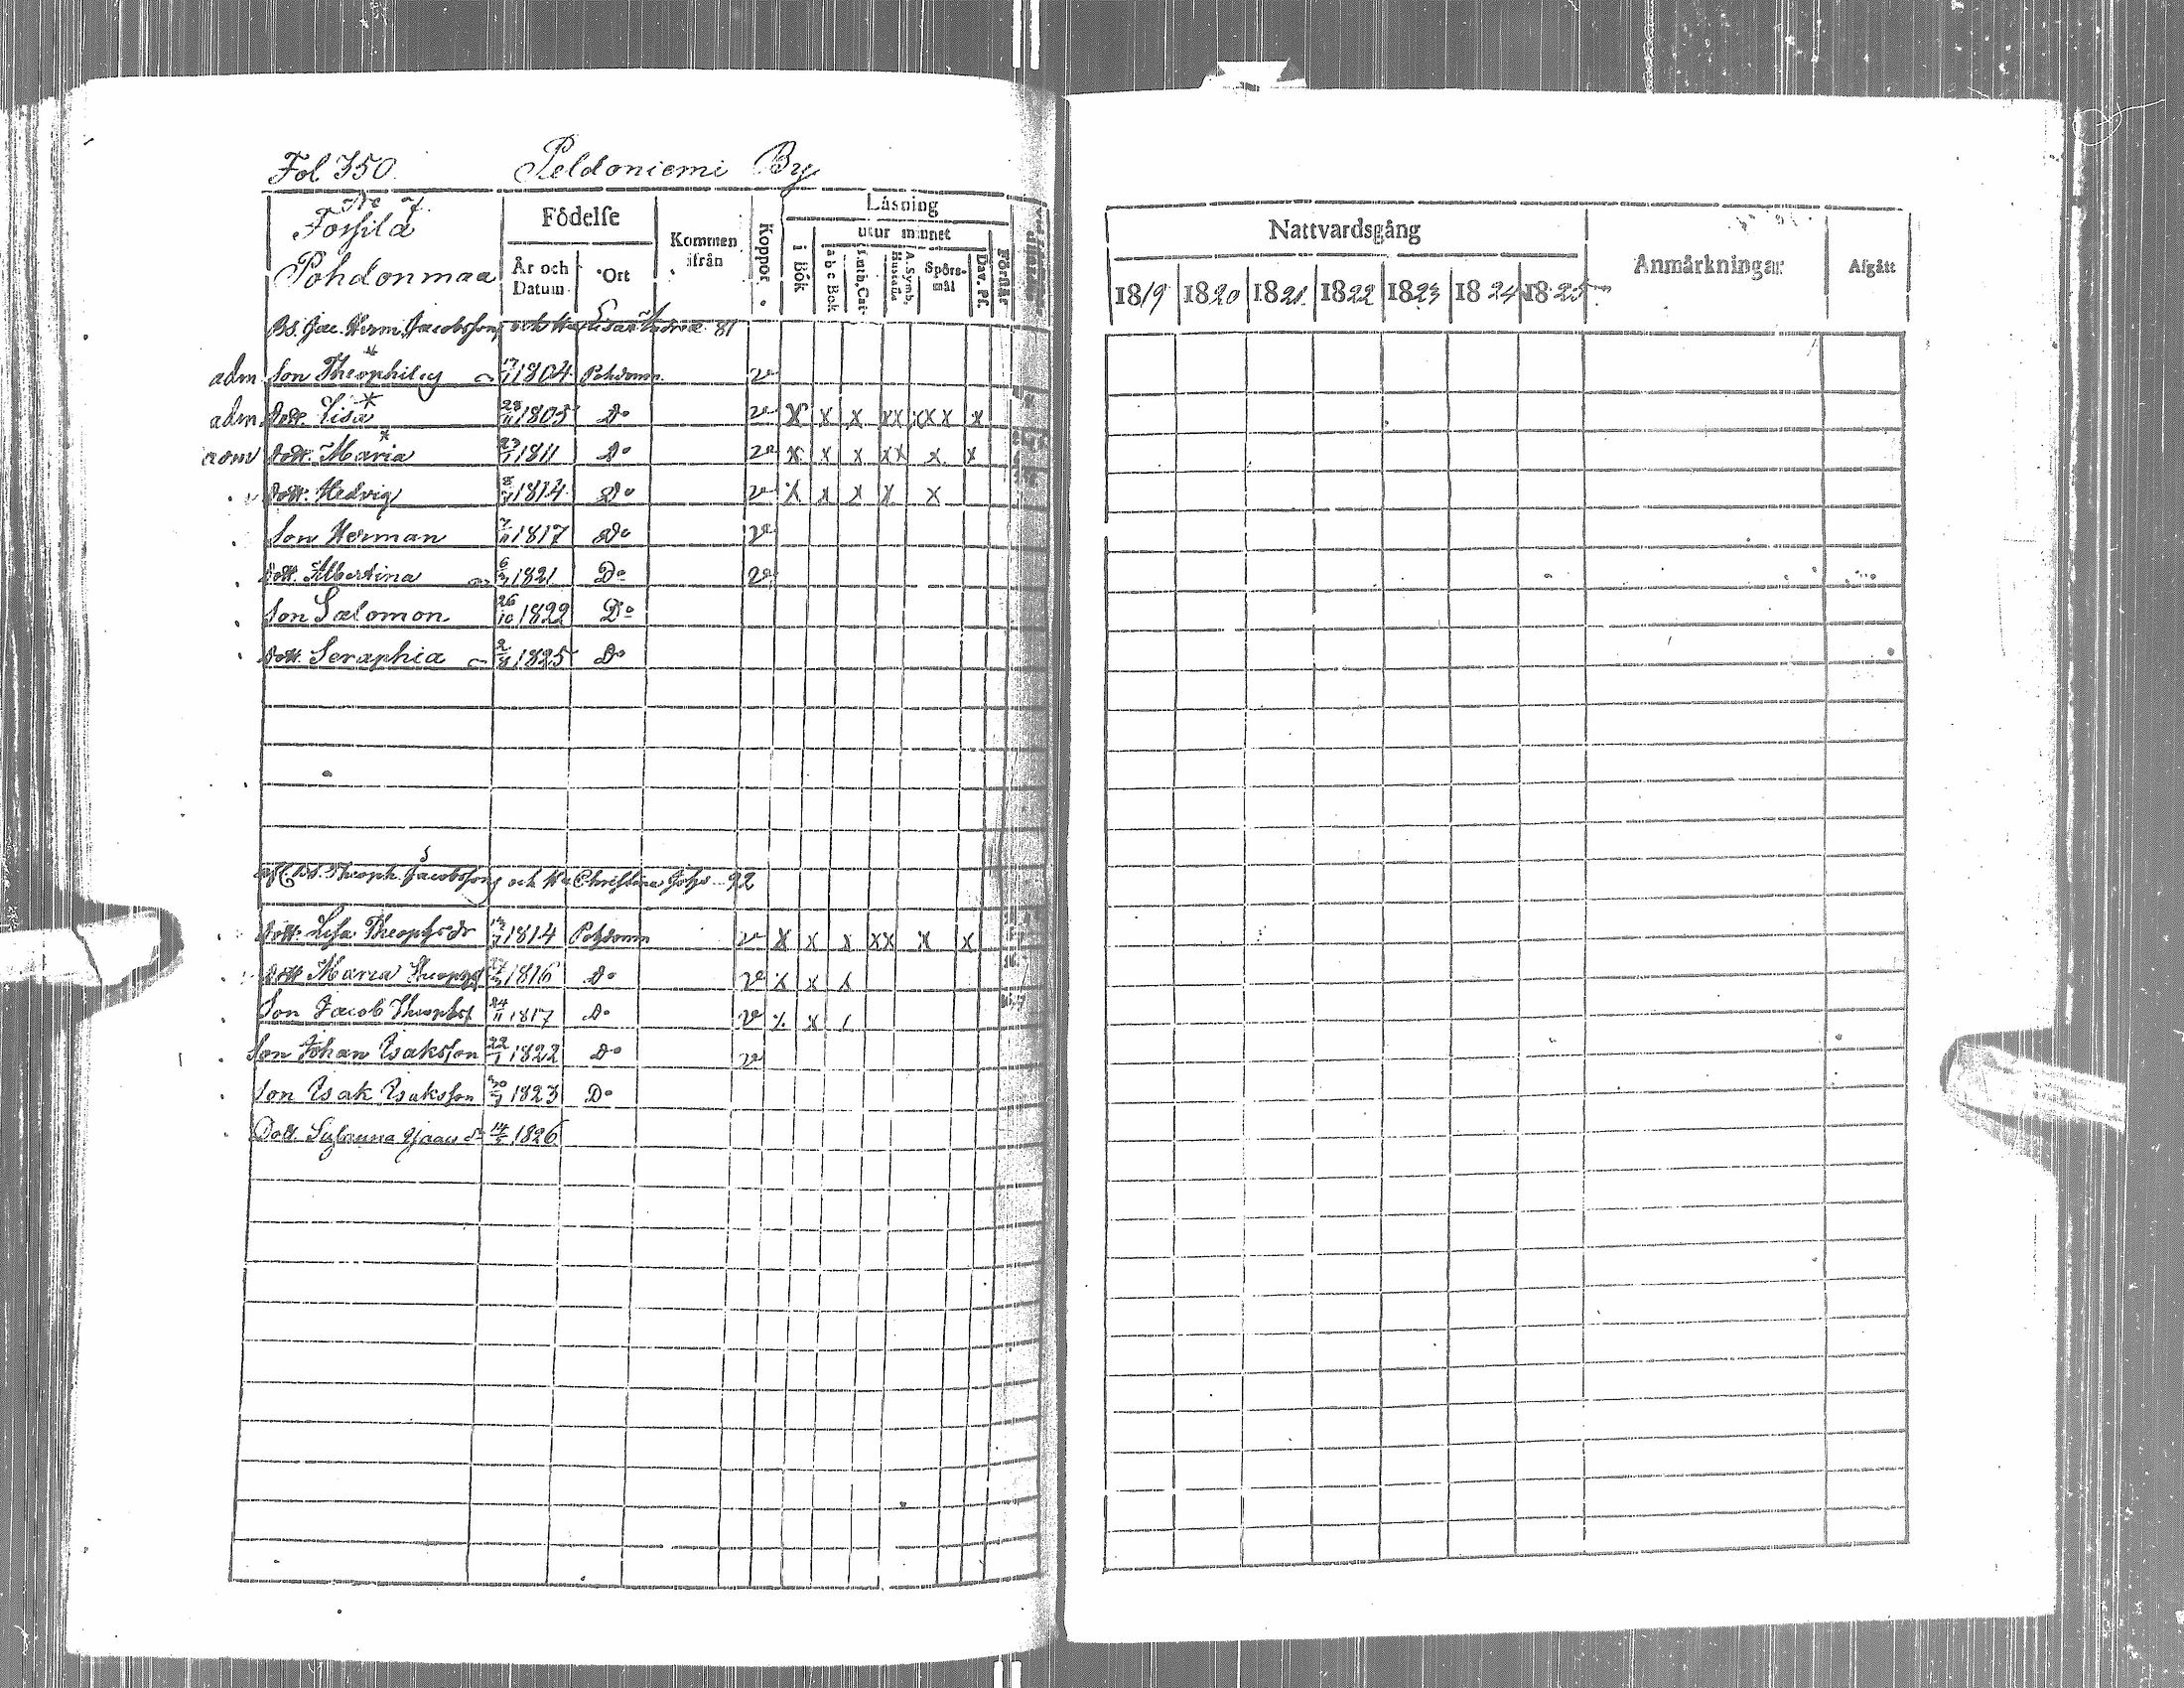 Fol 350. Peldoniemi By
No 7.
Forsila
Pohdonmaa
Födelse
År och Datum
Ort
Kommen ifrån
Koppor
Läsning
i Bok
utur minnet
a b c Bok
Luth. Cat.
A. Symb. Hustafla
Spörsmål
Dav. Ps.
Förstår
Bd. Jac. Herm. Jacobsson och Hu Lisa Andrae 81
adm. Son Theophilus 17/1 1804 Pohdonm. v
adm. Dott. Lisa 28/11 1805 Do v x x x xx xxx x
adm Dott. Maria 23/1 1811 Do v x x x xx x x
Dott. Hedvig 1814 Do v x x x x x
Son Herman 7/11 1817 Do v
Dott. Albertina 6/3 1821 Do v
Son Salomon 26/10 1822 Do
Dott. Seraphia 1825 Do
afl. Bd. Theoph. Jacobsson och Hu Christina Johs 92
Dott. Lisa Theophsdr 1814 Pohdonm v x x x xx x x
Dott Maria Theophsd 1816 Do v x x x
Son Jacob Theophs 24/11 1817 Do v x x x
Son Johan Isaksson 22/1 1822 Do v
Son Isak Isaksson 1823 Do
Dott. Susanna 14/5 1826
Nattvardsgång
1819 1820 1821 1822 1823 1824 1825
Anmärkningar
Afgått